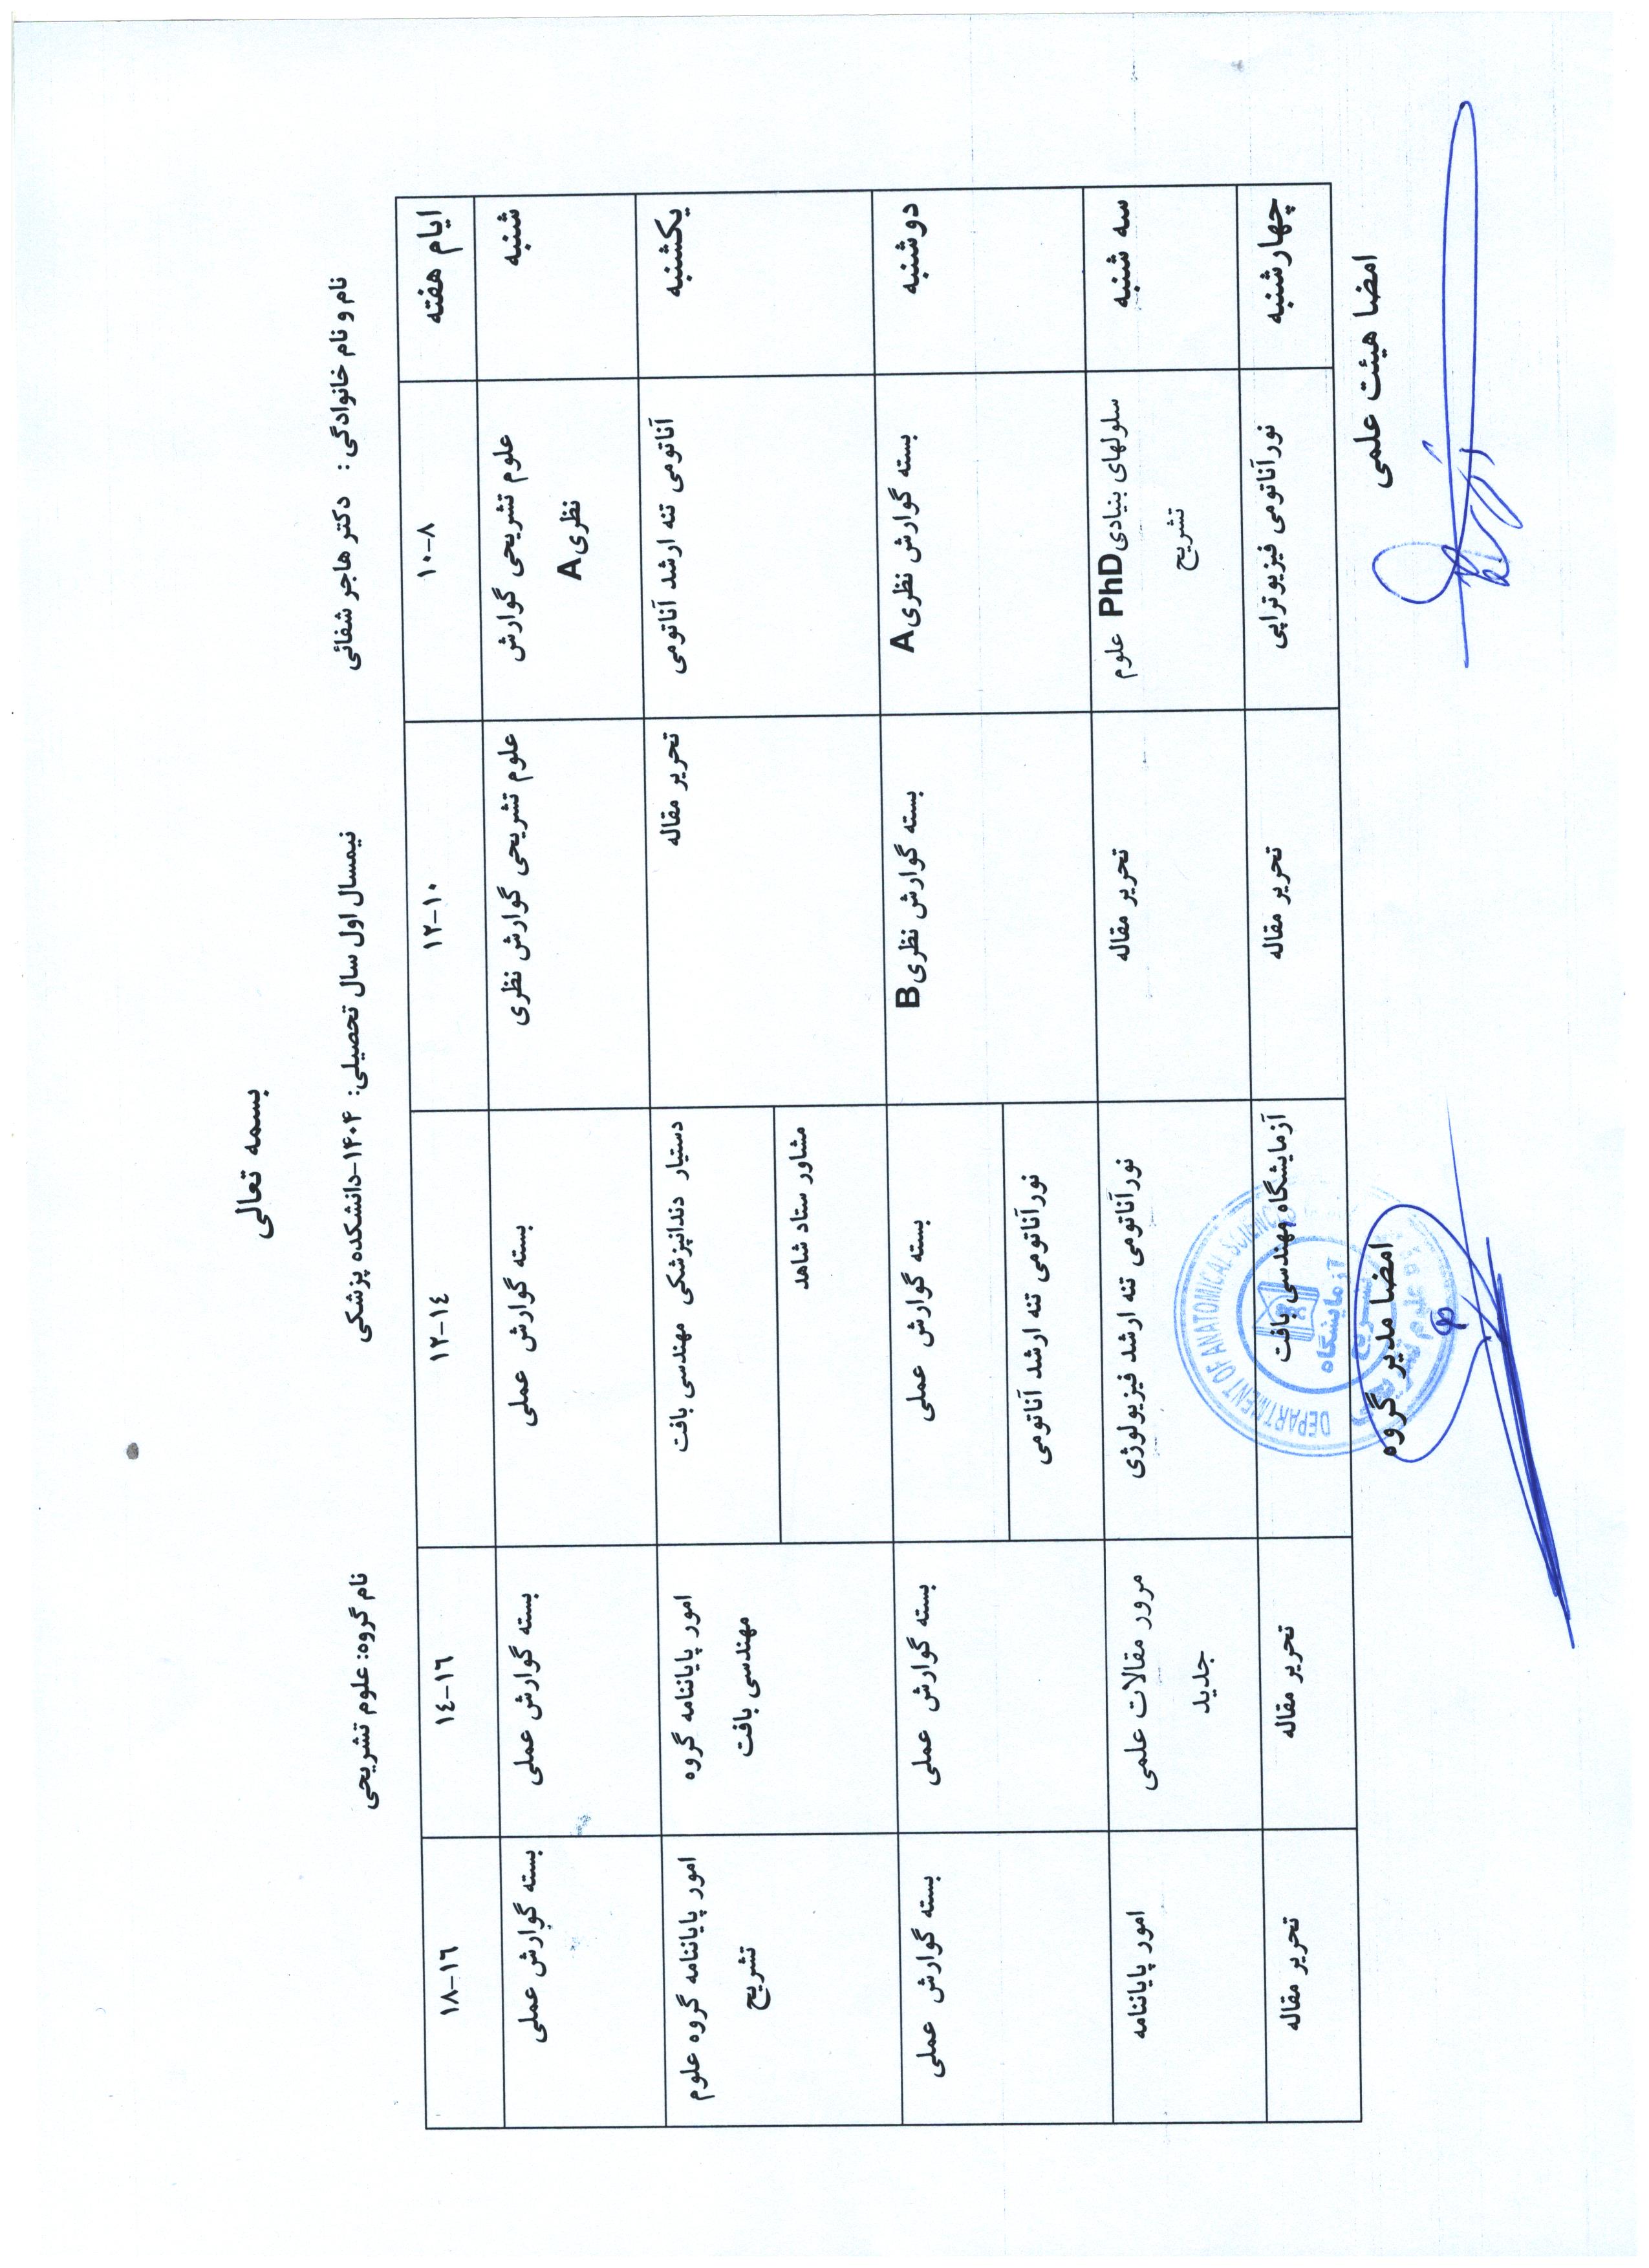 بسمه تعالی
نام و نام خانوادگی : دکتر هاجر شفائی
نیمسال اول سال تحصیلی: ۱۴۰۴-دانشکده پزشکی
نام گروه: علوم تشریحی
ایام هفته
۱۰-۸
۱۲-۱۰
۱۲-۱٤
۱٤-۱٦
۱۸-۱٦
شنبه
علوم تشریحی گوارش
نظری A
علوم تشریحی گوارش نظری
بسته گوارش عملی
بسته گوارش عملی
بسته گوارش عملی
یکشنبه
آناتومی تنه ارشد آناتومی
تحریر مقاله
دستیار دندانپزشکی مهندسی بافت
مشاور ستاد شاهد
امور پایاننامه گروه
مهندسی بافت
امور پایاننامه گروه علوم
تشریح
دوشنبه
بسته گوارش نظری A
بسته گوارش نظری B
بسته گوارش عملی
نورآناتومی تنه ارشد آناتومی
بسته گوارش عملی
بسته گوارش عملی
سه شنبه
سلولهای بنیادی PhD علوم
تشریح
تحریر مقاله
نورآناتومی تنه ارشد فیزیولوژی
مرور مقالات علمی
جدید
امور پایاننامه
چهارشنبه
نورآناتومی فیزیوتراپی
تحریر مقاله
آزمایشگاه مهندسی بافت
تحریر مقاله
تحریر مقاله
امضا هیئت علمی
امضا مدیر گروه
DEPARTMENT OF ANATOMICAL SCIENCES
آزمایشگاه
تشریح